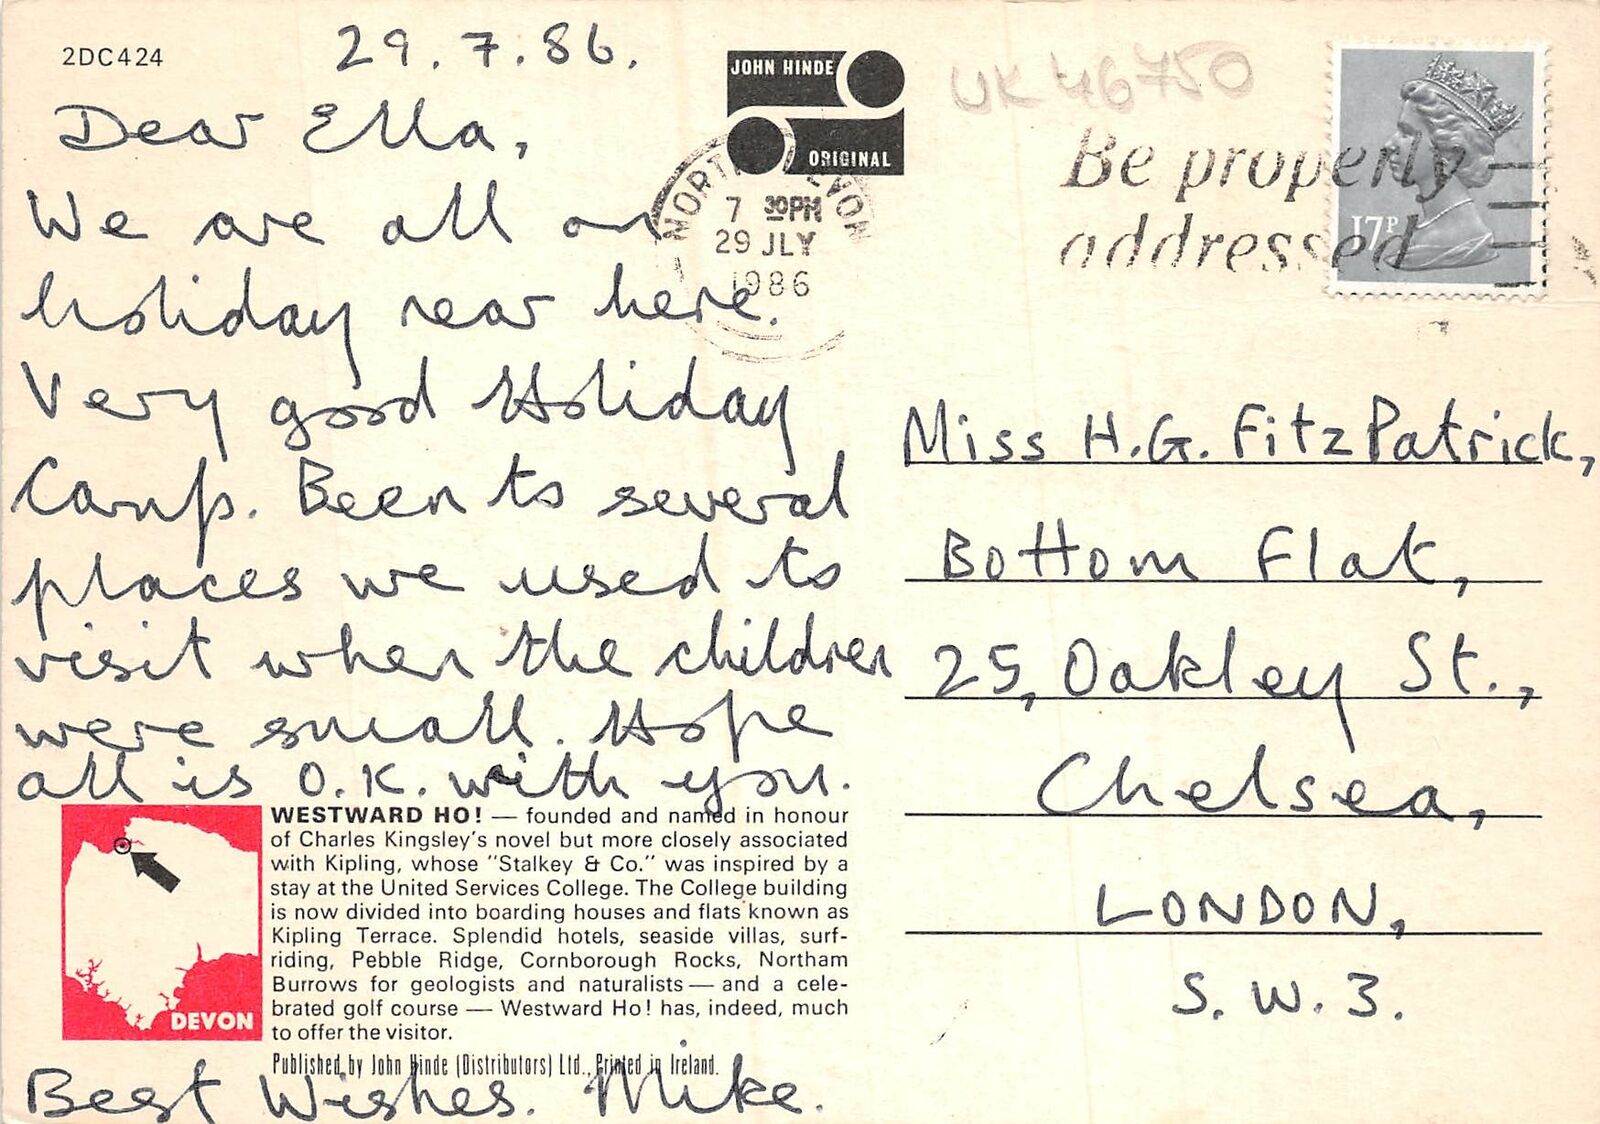 2DC424
29.7.86.
Dear Ella,
We are all on
holiday near here.
Very good Holiday
Camp. Been to several
places we used to
visit when the children
were small. Hope
all is O.K. with you.
WESTWARD HO! — founded and named in honour
of Charles Kingsley's novel but more closely associated
with Kipling, whose "Stalkey & Co." was inspired by a
stay at the United Services College. The College building
is now divided into boarding houses and flats known as
Kipling Terrace. Splendid hotels, seaside villas, surf-
riding, Pebble Ridge, Cornborough Rocks, Northam
Burrows for geologists and naturalists — and a cele-
brated golf course — Westward Ho! has, indeed, much
to offer the visitor.
DEVON
Published by John Hinde (Distributors) Ltd., Printed in Ireland.
Best Wishes. Mike.
JOHN HINDE
ORIGINAL
NORTH DEVON
7 30PM
29 JLY
1986
UK 46750
Be properly
addressed
17P
Miss H.G. FitzPatrick,
Bottom Flat,
25, Oakley St.,
Chelsea,
LONDON,
S.W.3.